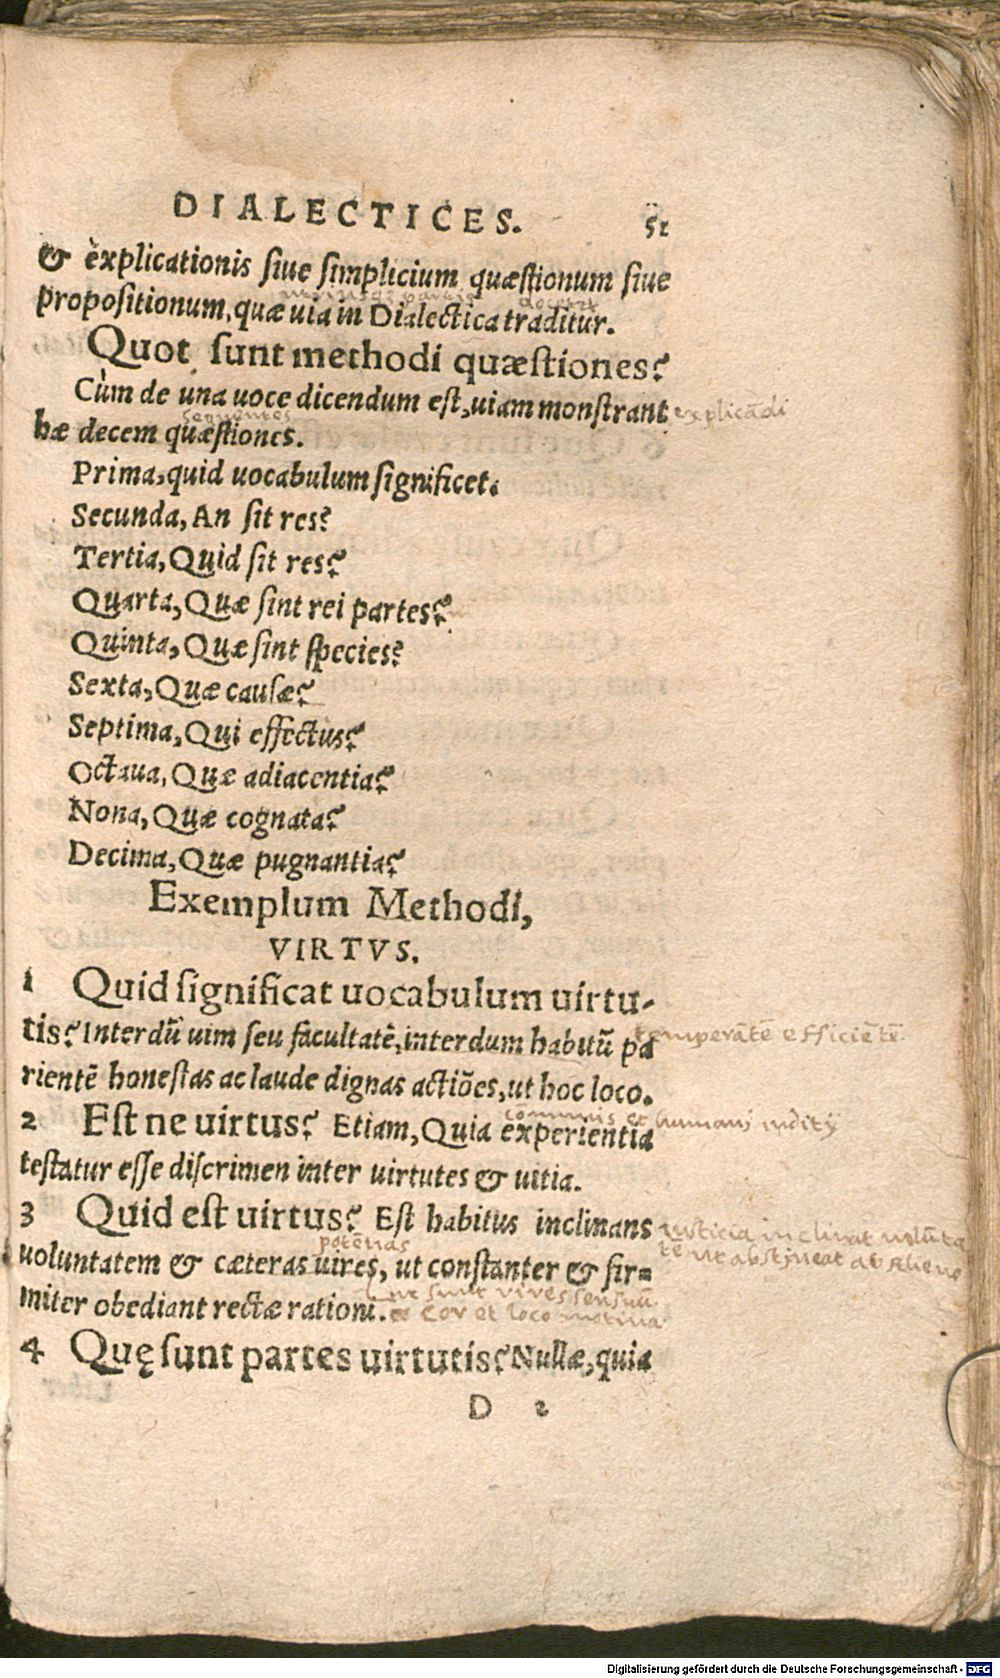 DIALECTICES. 51
& explicationis siue simplicium quæstionum siue
propositionum, quæ uia in Dialectica traditur.
Quot sunt methodi quæstiones?
Cùm de una uoce dicendum est, uiam monstrant explicādi
sequentes
hæ decem quæstiones.
Prima, quid uocabulum significet.
Secunda, An sit res?
Tertia, Quid sit res?
Quarta, Quæ sint rei partes?
Quinta, Quæ sint species?
Sexta, Quæ causæ?
Septima, Qui effectus?
Octaua, Quæ adiacentia?
Nona, Quæ cognata?
Decima, Quæ pugnantia?
Exemplum Methodi,
VIRTVS.
1 Quid significat uocabulum uirtu-
tis? Interdū uim seu facultatē, interdum habitū pa temperātē efficiētē
rientē honestas ac laude dignas actiōes, ut hoc loco.
communis et humani inditij
2 Est ne uirtus? Etiam, Quia experientia
testatur esse discrimen inter uirtutes & uitia.
3 Quid est uirtus? Est habitus inclinans iusticia inclinat uolūta
potētias tē ut abstineat ab alieno
uoluntatem & cæteras uires, ut constanter & fir-
ut sunt vires sensuū
miter obediant rectæ rationi. & cor et loco motiua
4 Quę sunt partes uirtutis? Nullæ, quia
D 2
Digitalisierung gefördert durch die Deutsche Forschungsgemeinschaft - DFG